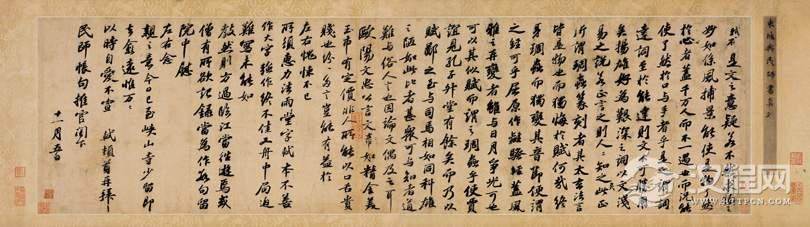 東坡與民師書真
是文之意疑若不然求物之
妙如係風捕景能使是物了然
於心者蓋千萬人而不一遇也而況能
使了然於口與手者乎是之謂詞
達詞至於能達則文不可勝用
矣揚雄好為艱深之詞以文淺
易之說若正言之則人人知之此正
所謂雕蟲篆刻者其太玄法言
皆是物也而獨悔於賦何哉終
身雕蟲而獨變其音節便謂
之經可乎屈原作離騷經蓋風
雅之再變者雖與日月爭光可也
可以其似賦而謂之雕蟲乎使賈
誼見孔子升堂有餘矣而乃以
賦鄙之至與司馬相如同科雄
之陋如此比者甚眾可與知者道
難與俗人言也因論文偶及之耳
歐陽文忠公言文章如精金美
玉市有定價非人所能以口舌貴
賤也紛紛多言豈能有益於
左右愧悚不已
所須惠力法雨堂字軾本不善
作大字強作終不佳又舟中局迫
難寫未能如
教然軾方過臨江當往遊焉或
僧有所欲記錄當為作數句留
院中慰
左右念
親之意今日已至峽山寺少留即
去愈遠惟萬萬
以時自愛不宣 軾頓首再拜
民師帳句推官閣下
十一月五日
汉程网